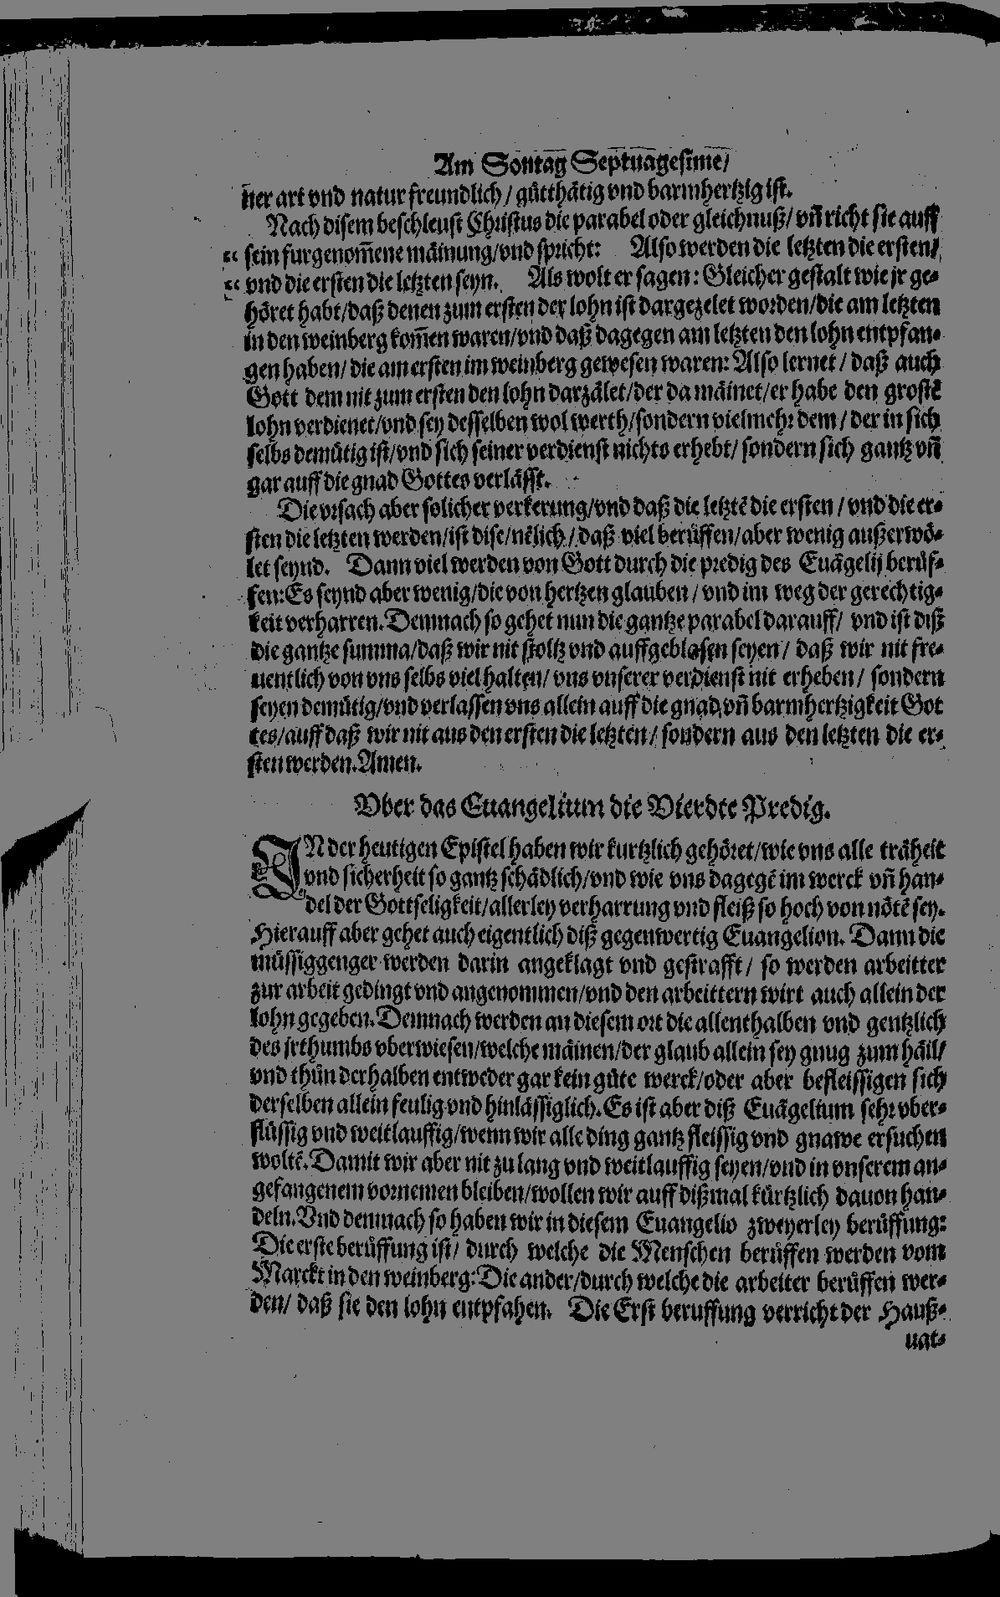 Am Sontag Septuagesime/
ner art vnd natur freundlich/ gütthätig vnd barmhertzig ist.
Nach disem beschleust Christus die parabel oder gleichnuß/ vñ richt sie auff
sein furgenom̃ene mäinung/vnd spricht: Also werden die letzten die ersten/
vnd die ersten die letzten seyn. Als wolt er sagen: Gleicher gestalt wie jr ge-
höret habt/daß denen zum ersten der lohn ist dargezelet worden/die am letzten
in den weinberg kom̃en waren/vnd daß dagegen am letzten den lohn entpfan-
gen haben/ die am ersten im weinberg gewesen waren: Also lernet/ daß auch
Gott dem nit zum ersten den lohn darzälet/der da mäinet/er habe den grostẽ
lohn verdienet/vnd sey desselben wol werth/sondern vielmehr dem/ der in sich
selbs demütig ist/vnd sich seiner verdienst nichts erhebt/ sondern sich gantz vñ
gar auff die gnad Gottes verläßt.
Die vrsach aber solicher verkerung/vnd daß die letztẽ die ersten/ vnd die er-
sten die letzten werden/ist dise/nẽlich/ daß viel berüffen/aber wenig außerwö-
let seynd. Dann viel werden von Gott durch die predig des Euãgelij berüf-
fen: Es seynd aber wenig/die von hertzen glauben/ vnd im weg der gerechtig-
keit verharren. Demnach so gehet nun die gantze parabel darauff/ vnd ist diß
die gantze summa/daß wir nit stoltz vnd auffgeblasen seyen/ daß wir nit fre-
uentlich von vns selbs viel halten/ vns vnserer verdienst nit erheben/ sondern
seyen demütig/vnd verlassen vns allein auff die gnad vñ barmhertzigkeit Got
tes/auff daß wir nit aus den ersten die letzten/ sondern aus den letzten die er-
sten werden. Amen.
Vber das Euangelium die Vierdte Predig.
IN der heutigen Epistel haben wir kurtzlich gehöret/wie vns alle träheit
vnd sicherheit so gantz schädlich/vnd wie vns dagegẽ im werck vñ han-
del der Gottseligkeit/allerley verharrung vnd fleiß so hoch von nötẽ sey.
Hierauff aber gehet auch eigentlich diß gegenwertig Euangelion. Dann die
müssiggenger werden darin angeklagt vnd gestrafft/ so werden arbeitter
zur arbeit gedingt vnd angenommen/vnd den arbeittern wirt auch allein der
lohn gegeben. Demnach werden an diesem ort die allenthalben vnd gentzlich
des jrthumbs vberwiesen/welche mäinen/der glaub allein sey gnug zum häil/
vnd thün derhalben entweder gar kein güte werck/oder aber befleissigen sich
derselben allein feulig vnd hinlässiglich. Es ist aber diß Euãgelium sehr vber-
flüssig vnd weitlauffig/wenn wir alle ding gantz fleissig vnd gnawe ersuchen
woltẽ. Damit wir aber nit zu lang vnd weitlauffig seyen/vnd in vnserem an-
gefangenem vornemen bleiben/wollen wir auff dißmal kürtzlich dauon han-
deln. Vnd demnach so haben wir in diesem Euangelio zweyerley berüffung:
Die erste berüffung ist/ durch welche die Menschen berüffen werden vom
Marckt in den weinberg: Die ander/durch welche die arbeiter berüffen wer-
den/ daß sie den lohn entpfahen. Die Erst beruffung verricht der Hauß-
uat-